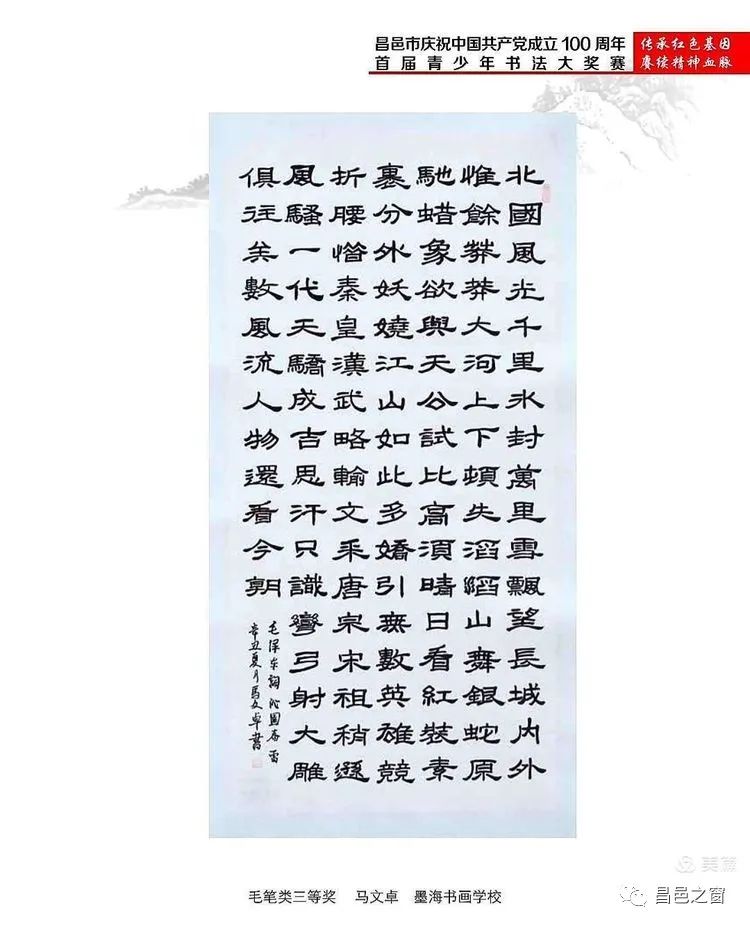 昌邑市庆祝中国共产党成立100周年
首届青少年书法大奖赛
传承红色基因
赓续精神血脉
北國風光千里冰封萬里雪飄望長城內外
惟餘莽莽大河上下頓失滔滔山舞銀蛇原
馳蜡象欲與天公試比高須晴日看紅裝素
裹分外妖嬈江山如此多嬌引無數英雄競
折腰惜秦皇漢武略輸文采唐宗宋祖稍遜
風騷一代天驕成吉思汗只識彎弓射大雕
俱往矣數風流人物還看今朝
毛泽东詞沁園春雪
辛丑夏月馬文卓書
毛笔类三等奖 马文卓 墨海书画学校
美篇
昌邑之窗